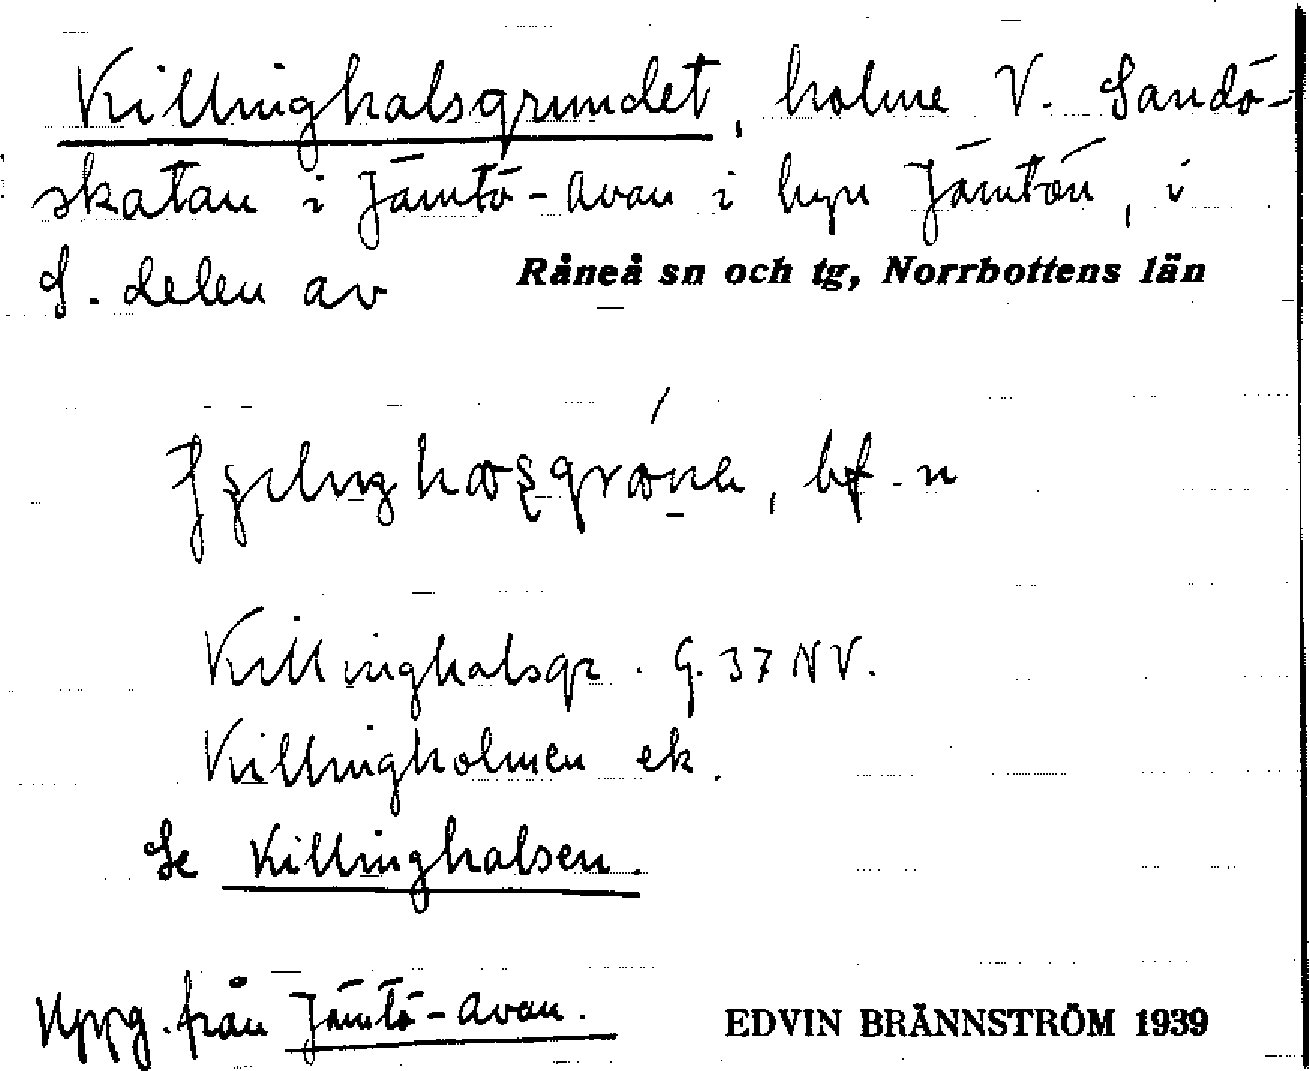 Killinghalsgrundet, holme V. Sandö-
skatan i Jämtö-Avan i byn Jämtön, i
S. delen av Råneå sn och tg, Norrbottens län
bf. n
Killinghalsgr. G. 37 NV.
Killingholmen ek.
Se Killinghalsen.
Uppg. från Jämtö-Avan. EDVIN BRÄNNSTRÖM 1939